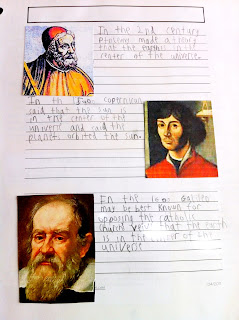 In the 2nd century
Ptolemy made a theory
that the earth is in the
center of the universe.
In th 1500 Copernicus
said that the sun is
in the center of the
universe and said the
planet orbited the sun.
In the 1600 Galileo
may be best known for
opposing the catholic
church's view that the earth
is in the center of the
universe